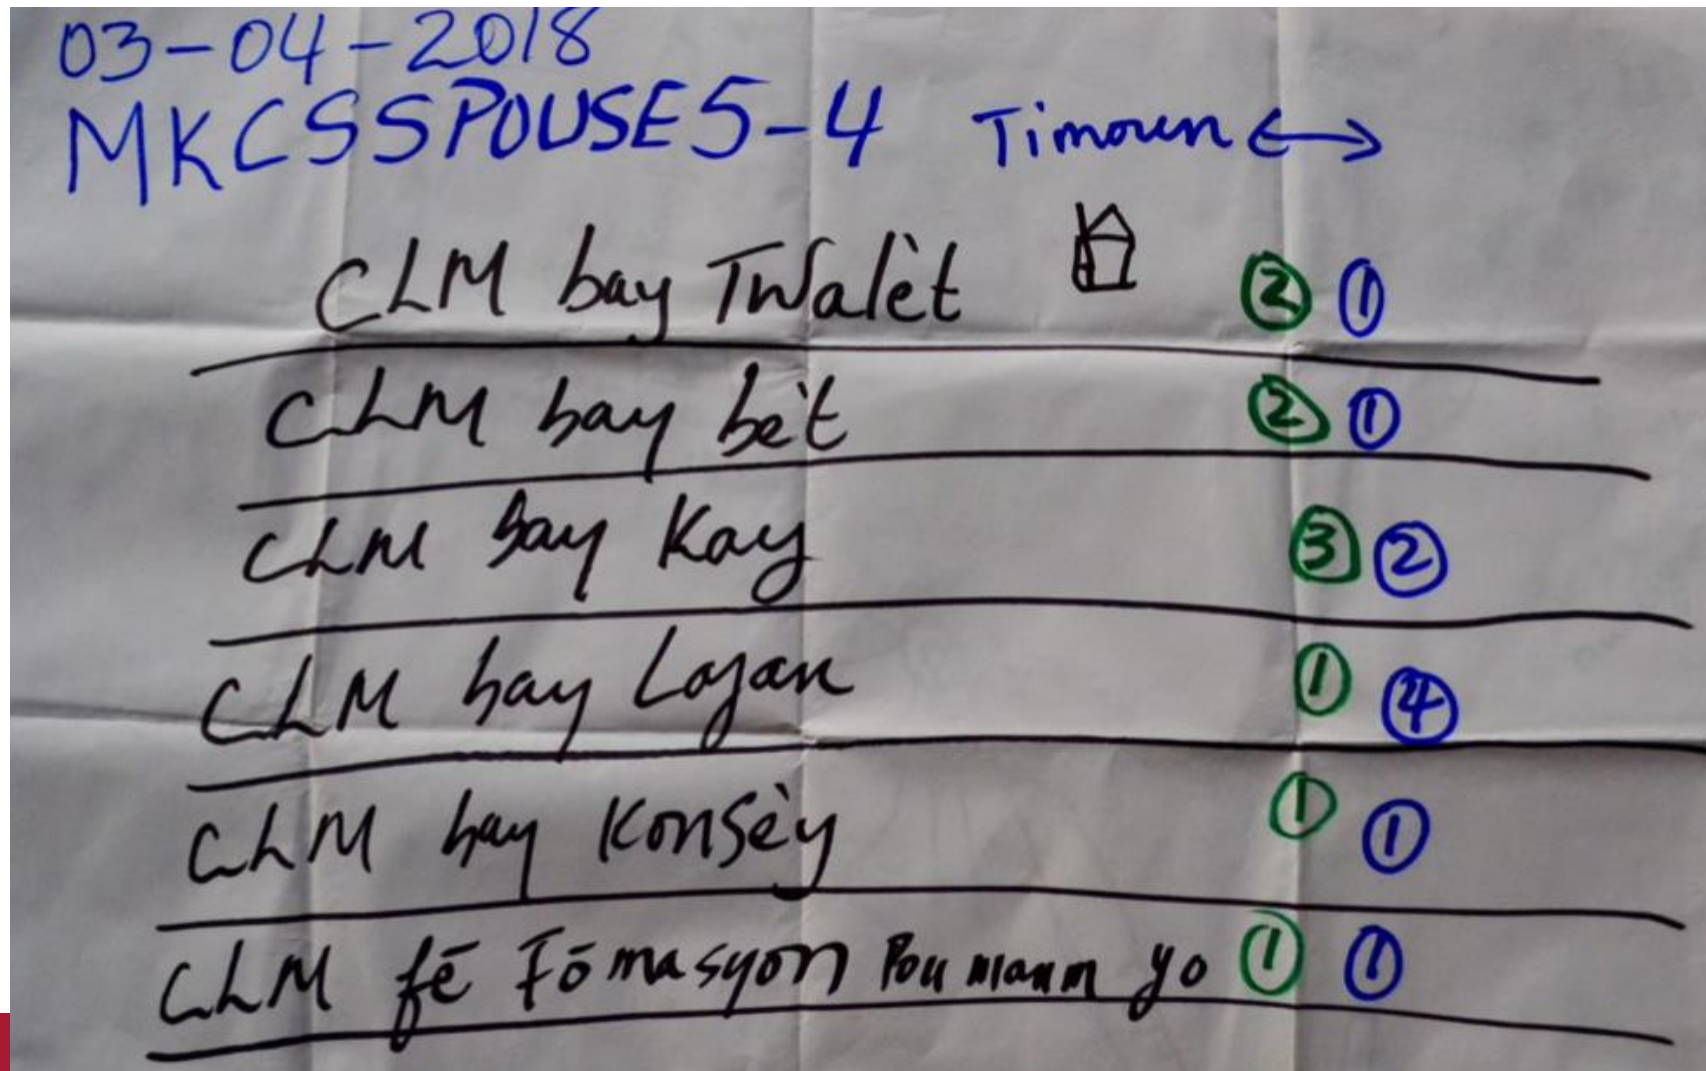 03-04-2018
MKCSSPOUSE5-4 Timoun ↔
CLM bay Twalèt ② ①
CLM bay bèt ② ①
CLM bay Kay ③ ②
CLM bay Lajan ① ④
CLM bay Konsèy ① ①
CLM fē Fōmasyon Pou manm yo ① ①